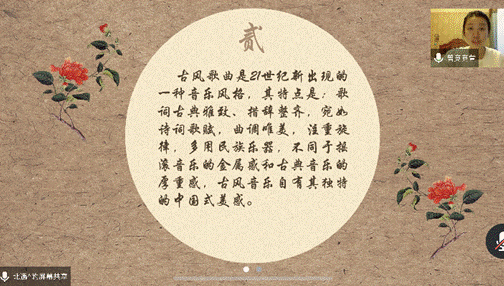 贰
古风歌曲是21世纪新出现的
一种音乐风格，其特点是：歌
词古典雅致、措辞整齐，宛如
诗词歌赋，曲调唯美，注重旋
律，多用民族乐器，不同于摇
滚音乐的金属感和古典音乐的
厚重感，古风音乐自有其独特
的中国式美感。
的屏幕共享